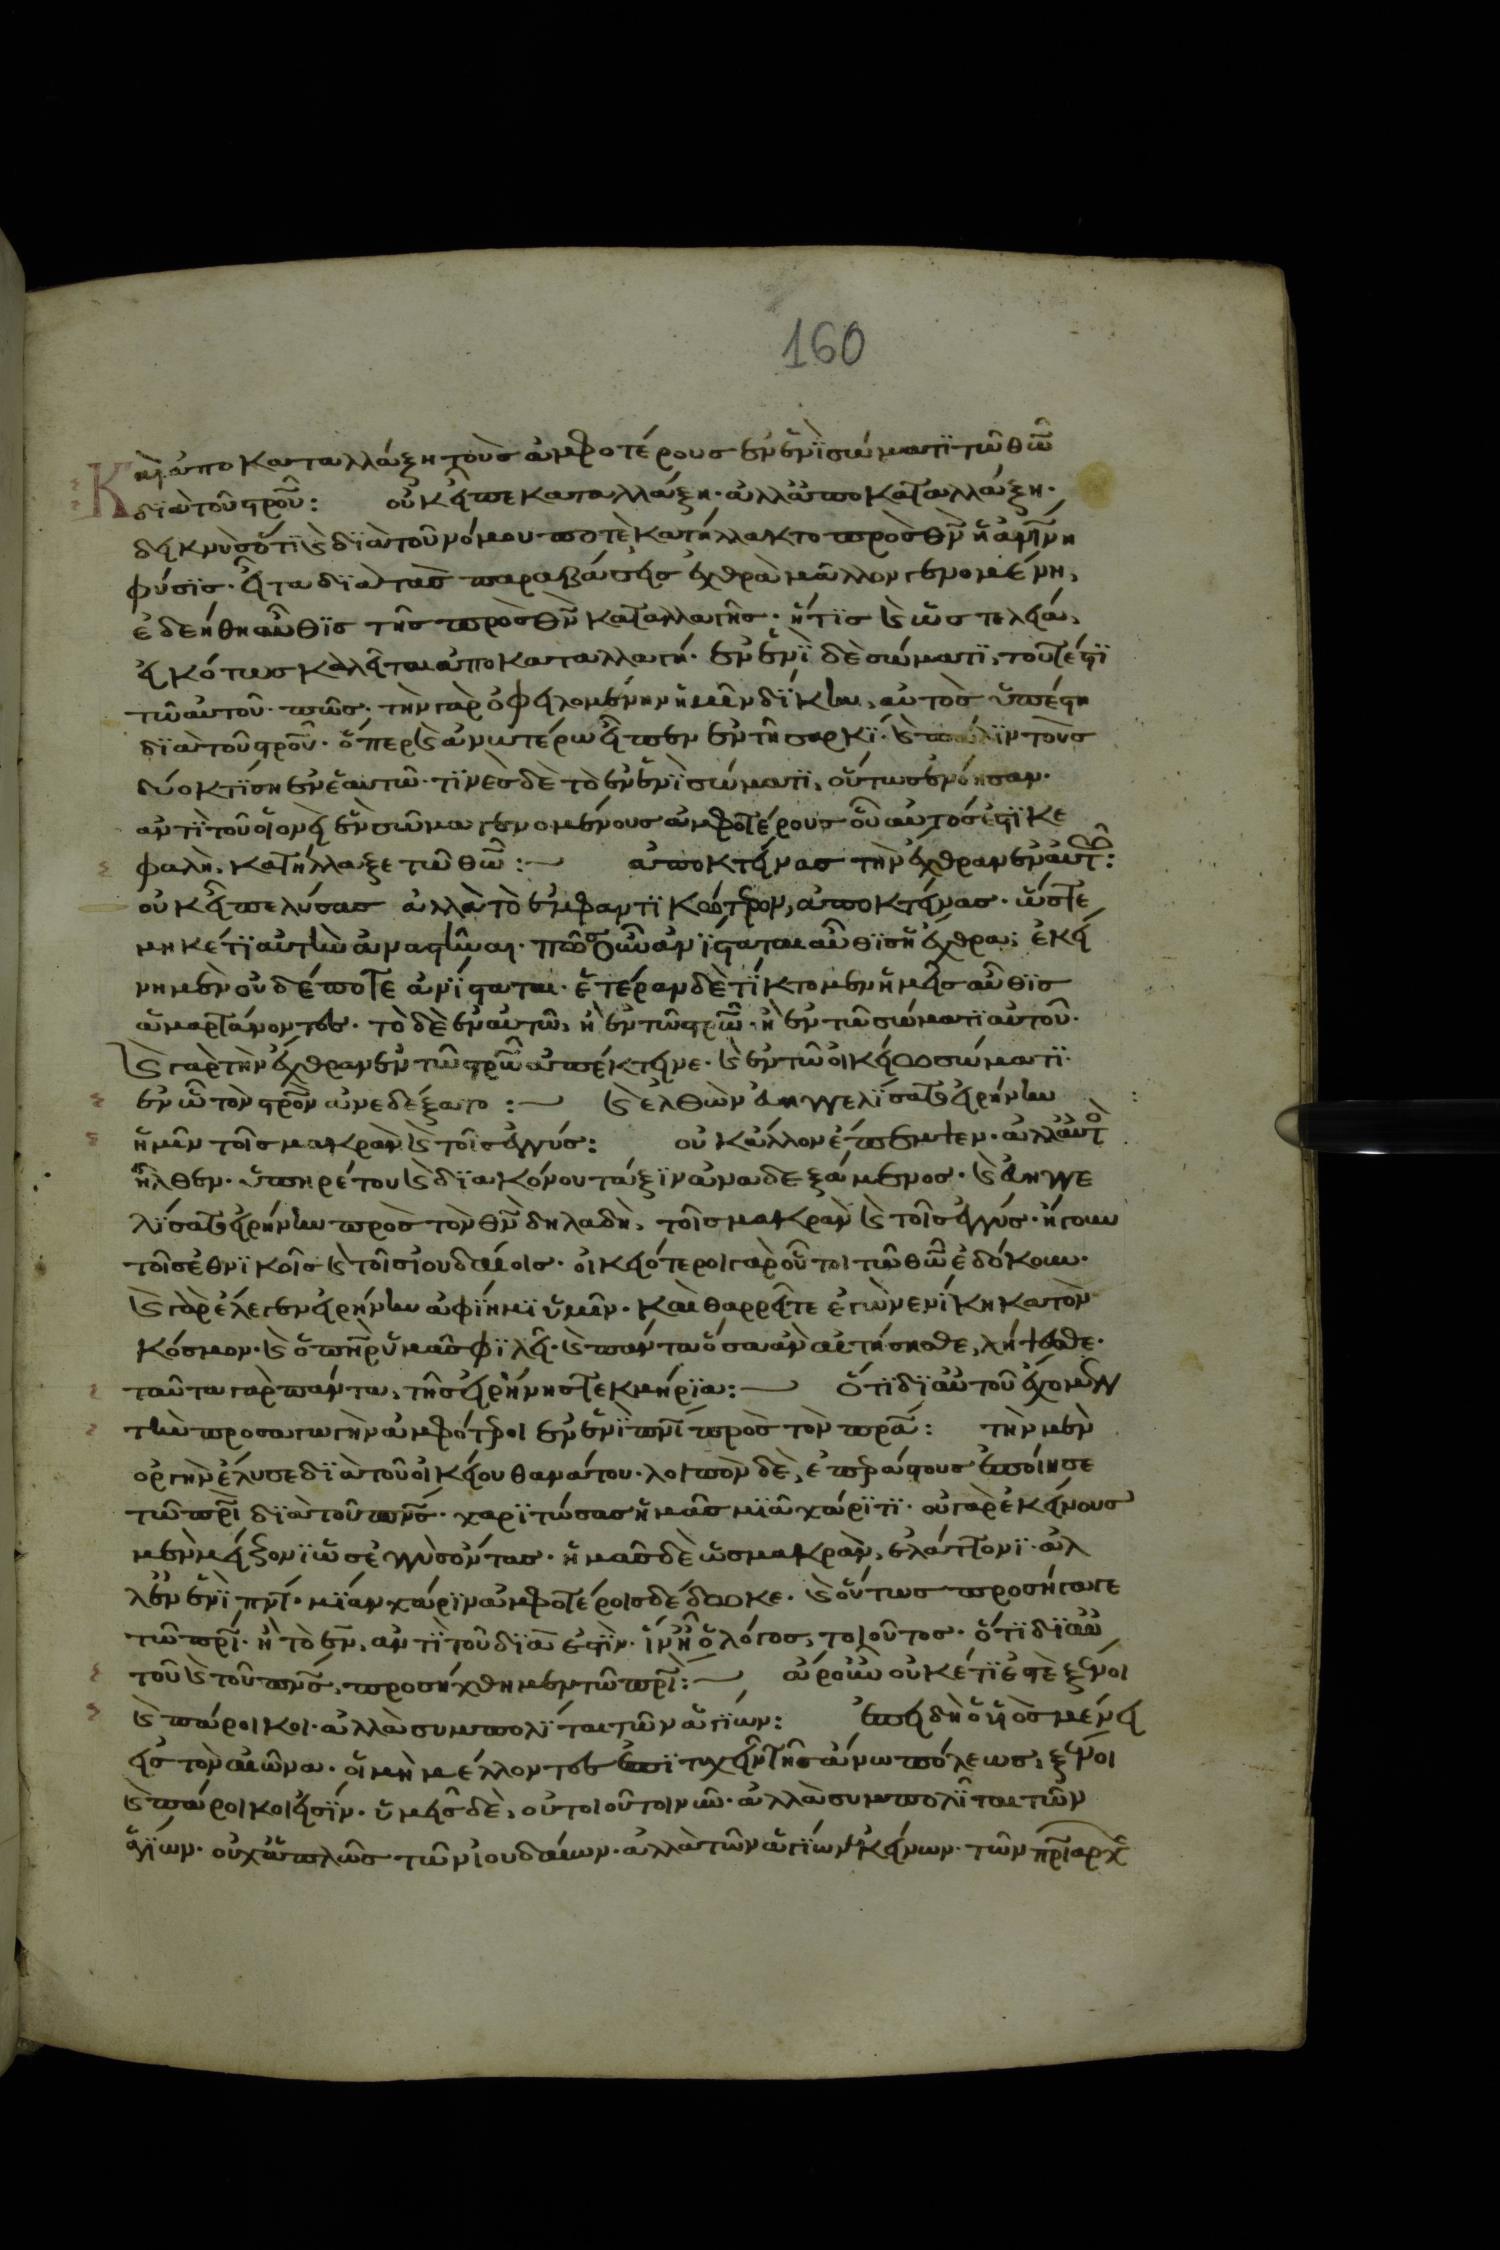 160
Καὶ ἀποκαταλλάξη τοὺς ἀμφοτέρους ἐν ἑνὶ σώματι τῶ θῶ
διὰ τοῦ σροῦ: οὐκ εἶπε καταλλάξη· ἀλλ' ἀποκαταλλάξη·
δεικνὺς ὅτι καὶ διὰ τοῦ νόμου ποτὲ κατήλλακτο πρὸς θν ἡ ἀνίνη
φύσις· εἶτα διὰ τὰς παραβάσεις ἐχθρὰ μᾶλλον γενομένη,
ἐδεήθη αὖθις τῆς πρὸς θν καταλλαγῆς· ἥτις καὶ ὡς τελεία,
εἰκότως καλεῖται ἀποκαταλλαγή· ἐν ἑνὶ δὲ σώματι, τουτέστι
τῶ αὐτοῦ· πῶς· τὴν γὰρ ὀφειλομένην ἡμῖν δίκην, αὐτὸς ὑπέστη
διὰ τοῦ σροῦ· ὅπερ καὶ ἀνωτέρω εἶπεν ἐν τῆ σαρκί· καὶ πάλιν τοὺς
δύο κτίση ἐν ἑαυτῶ· τινὲς δὲ τὸ ἐν ἑνὶ σώματι, οὕτως ἐνόησαν·
ἀντὶ τοῦ οἱονεὶ ἓν σῶμα γενομένους ἀμφοτέρους οὗ αὐτός ἐστι κε
φαλὴ, κατήλλαξε τῶ θῶ: ἀποκτείνας τὴν ἔχθραν ἐν αὐτῶ:
οὐκ εἶπε λύσας ἀλλὰ τὸ ἐμφαντικώτερον, ἀποκτείνας· ὥστε
μηκέτι αὐτὴν ἀναστῆναι· πῶς οὖν ἀνίσταται αὖθις ἡ ἔχθρα; ἐκεί
νη μὲν οὐδέποτε ἀνίσταται· ἑτέραν δὲ τίκτομεν ἡμεῖς αὖθις
ἁμαρτάνοντες· τὸ δὲ ἐν αὐτῶ, ἢ ἐν τῶ σρῶ· ἢ ἐν τῶ σώματι αὐτοῦ·
καὶ γὰρ τὴν ἔχθραν ἐν τῶ σρῶ ἀπέκτεινε· καὶ ἐν τῶ οἰκείω σώματι·
ἐν ὧ τὸν σρον ἀνεδέξατο: καὶ ἐλθὼν εὐηγγελίσατο εἰρήνην
ἡμῖν τοῖς μακρὰν καὶ τοῖς ἐγγύς: οὐκ ἄλλον ἔπεμψεν· ἀλλ' αὐτὸς
ἦλθεν· ὑπηρέτου καὶ διακόνου τάξιν ἀναδεξάμενος· καὶ εὐηγγε
λίσατο εἰρήνην πρὸς τὸν θν δηλαδὴ, τοῖς μακρὰν καὶ τοῖς ἐγγύς· ἤγουν
τοῖς ἐθνικοῖς καὶ τοῖς ἰουδαίοις· οἰκειότεροι γὰρ οὗτοι τῶ θῶ ἐδόκουν·
καὶ γὰρ ἔλεγεν εἰρήνην ἀφίημι ὑμῖν· καὶ θαρρεῖτε ἐγὼ νενίκηκα τὸν
κόσμον· καὶ ὁ πηρ ὑμᾶς φιλεῖ· καὶ πάντα ὅσα ἂν αἰτήσησθε, λήψεσθε·
ταῦτα γὰρ πάντα, τῆς εἰρήνης τεκμήρια: ὅτι δι' αὐτοῦ ἔχομεν
τὴν προσαγωγὴν ἀμφότεροι ἐν ἑνὶ πνι πρὸς τὸν πρα: τὴν μὲν
ὀργὴν ἔλυσε διὰ τοῦ οἰκείου θανάτου· λοιπὸν δὲ, ἐπεράστους ἐποίησε
τῶ πρι διὰ τοῦ πνς· χαριτώσας ἡμᾶς μιᾶ χάριτι· οὐ γὰρ ἐκείνους
μὲν μείζονι ὡς ἐγγὺς ὄντας· ἡμᾶς δὲ ὡς μακρὰν, ἐλάττονι· ἀλ
λ' ἐν ἑνὶ πνι· μίαν χάριν ἀμφοτέροις δέδωκε· καὶ οὕτως προσήγαγε
τῶ πρι· ἢ τὸ ἐν, ἀντὶ τοῦ διά ἐστιν· ἵν' ἦ ὁ λόγος, τοιοῦτος· ὅτι δι' αὐ
τοῦ καὶ τοῦ πνς, προσήχθημεν τῶ πρι: ἄρ' οὖν οὐκέτι ἐστὲ ξένοι
καὶ πάροικοι· ἀλλὰ συμπολῖται τῶν ἁγίων: ἐπειδὴ ὁ υἱὸς μένει
εἰς τὸν αἰῶνα· οἱ μὴ μέλλοντες ἐπιτυχεῖν τῆς ἄνω πόλεως, ξένοι
καὶ πάροικοι εἰσίν· ὑμεῖς δὲ, οὐ τοιοῦτοι νῦν· ἀλλὰ συμπολῖται τῶν
ἁγίων· οὐχ ἁπλῶς τῶν ἰουδαίων· ἀλλὰ τῶν ἁγίων ἐκείνων· τῶν πριαρχ